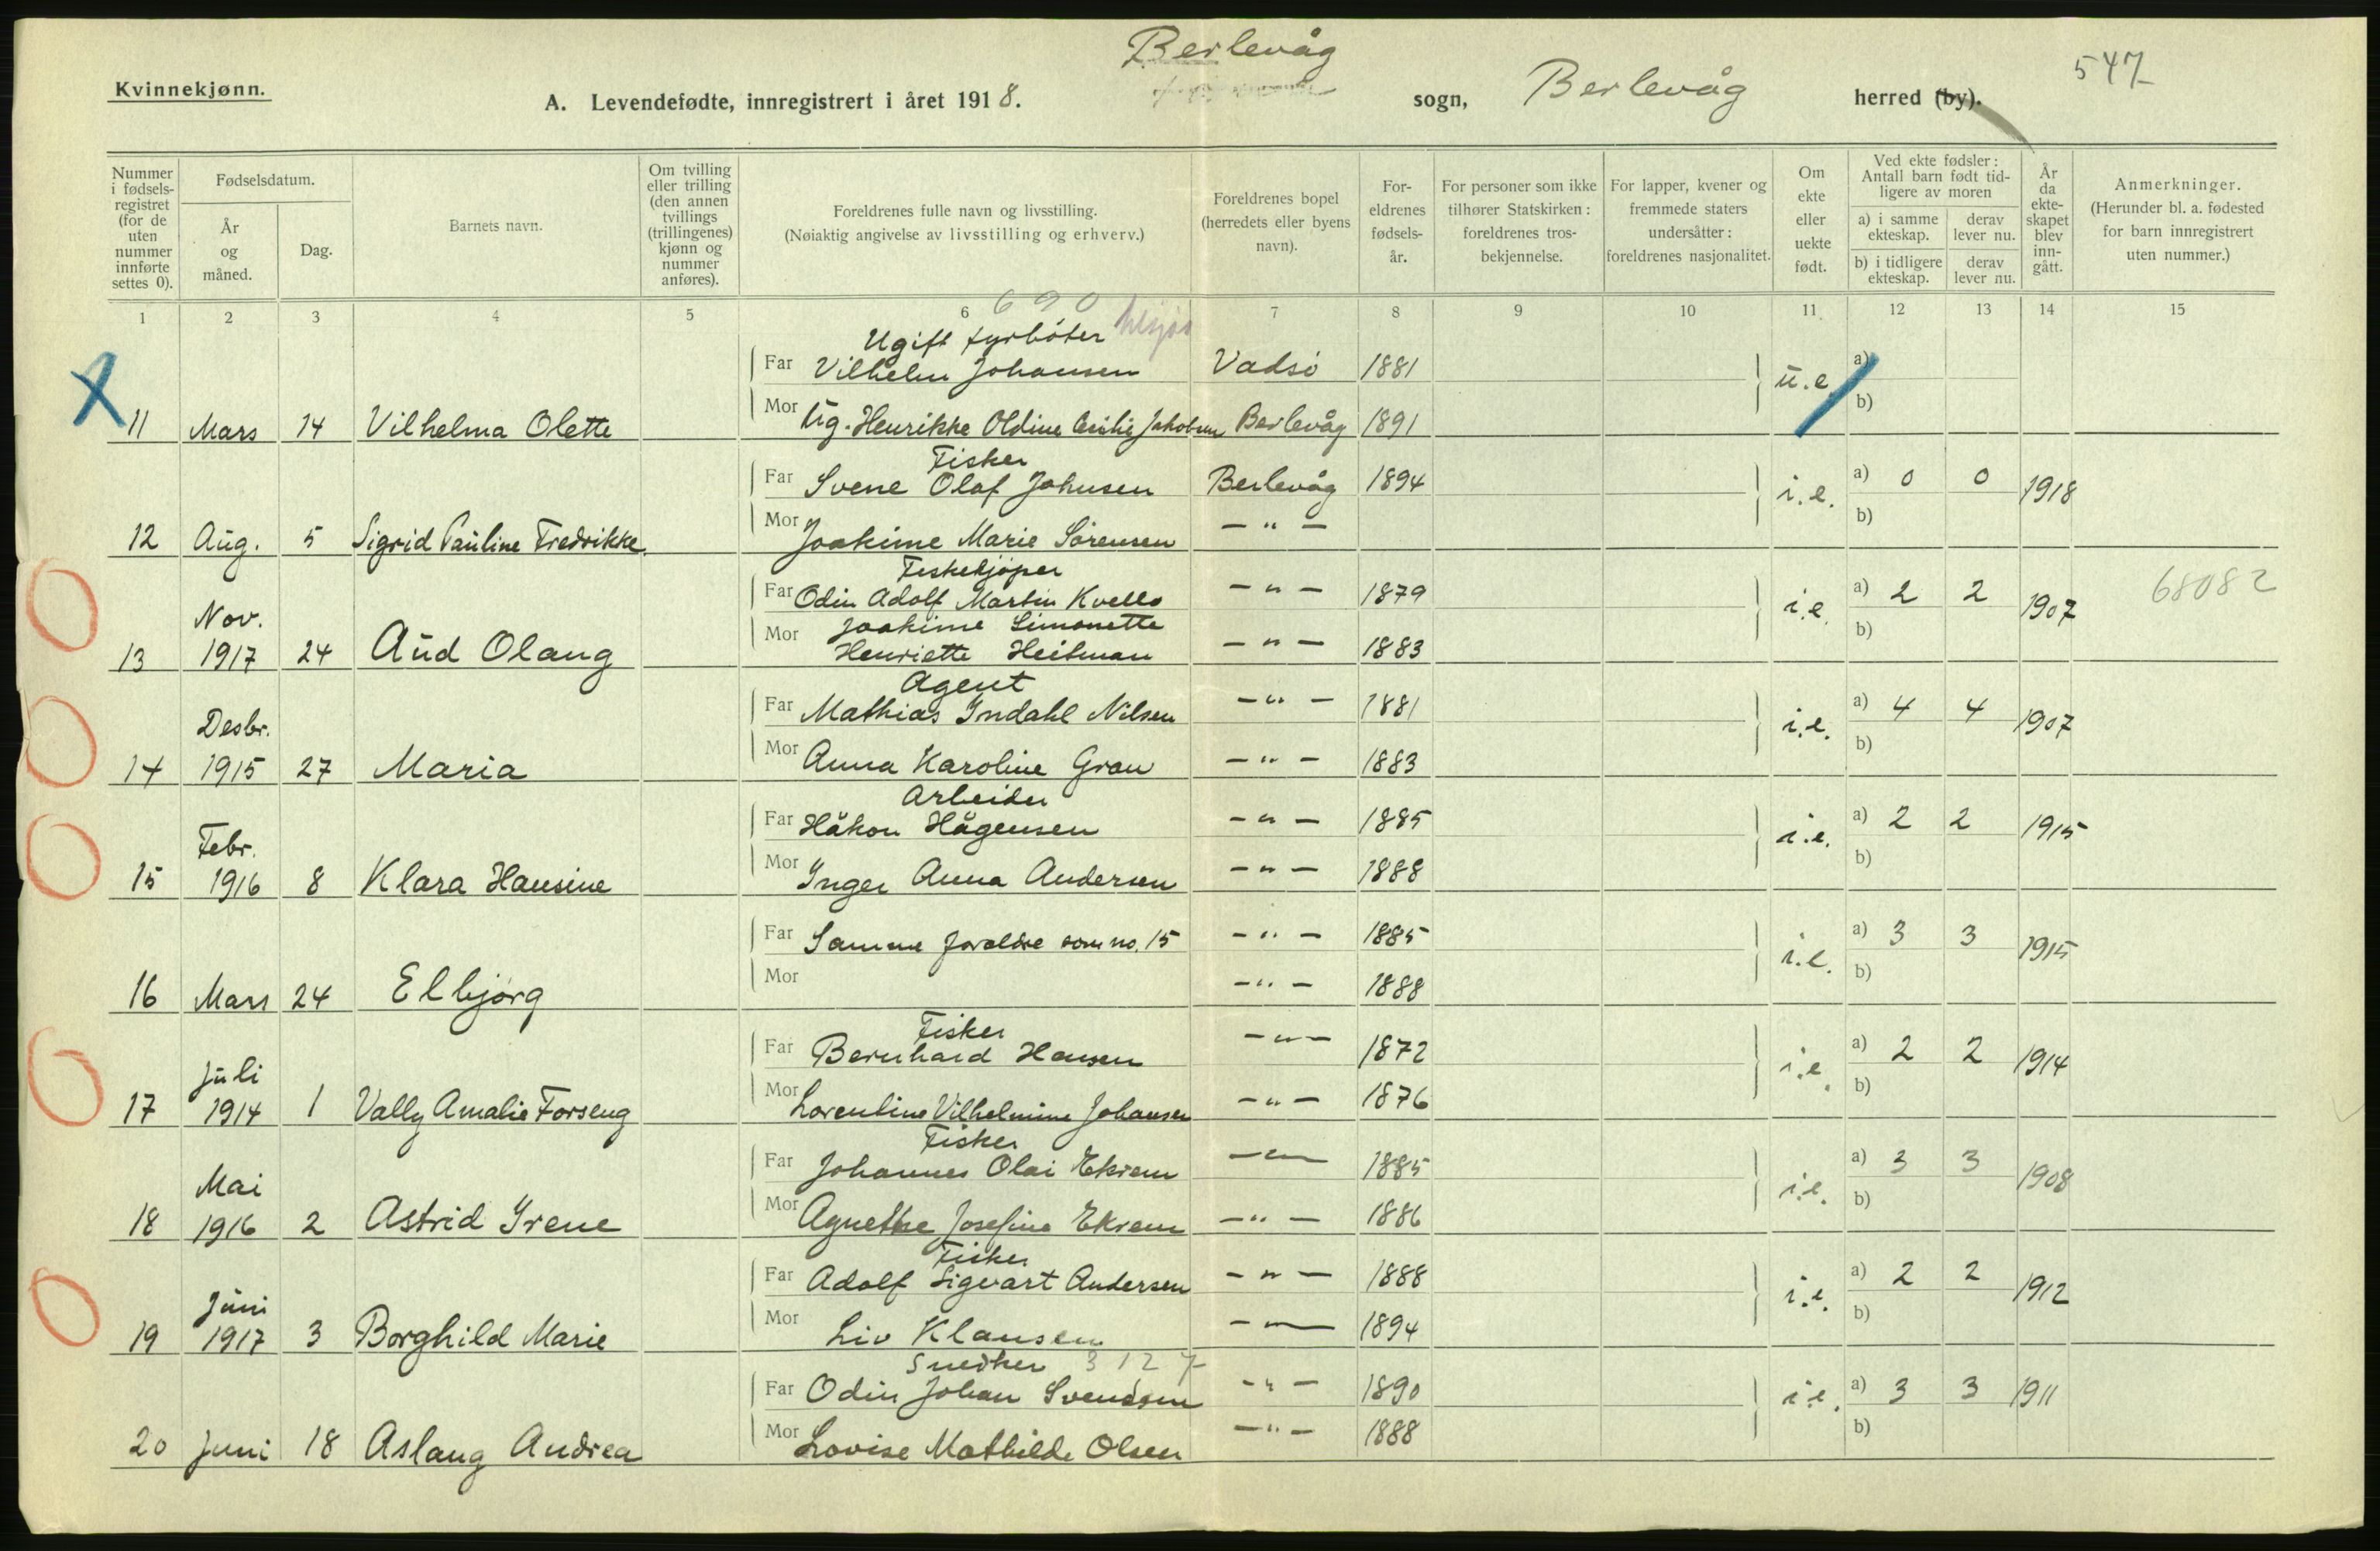 Berlevåg
547
Kvinnekjønn.
A. Levendefødte, innregistrert i året 1918. sogn, Berlevåg herred (by).
Nummer i fødsels-registret (for de uten nummer innførte settes 0).
Fødselsdatum.
År og måned.
Dag.
Barnets navn.
Om tvilling eller trilling (den annen tvillings (trillingenes) kjønn og nummer anføres).
Foreldrenes fulle navn og livsstilling.
(Nøiaktig angivelse av livsstilling og erhverv.)
Foreldrenes bopel (herredets eller byens navn).
For-eldrenes fødsels-år.
For personer som ikke tilhører Statskirken: foreldrenes tros-bekjennelse.
For lapper, kvener og fremmede staters undersåtter: foreldrenes nasjonalitet.
Om ekte eller uekte født.
Ved ekte fødsler: Antall barn født tid-ligere av moren
a) i samme ekteskap.
derav lever nu.
b) i tidligere ekteskap.
derav lever nu.
År da ekte-skapet blev inn-gått.
Anmerkninger.
(Herunder bl. a. fødested for barn innregistrert uten nummer.)
1 2 3 4 5 6 7 8 9 10 11 12 13 14 15
690
Ugift fyrbøter
Far Vilhelm Johansen Vadsö 1881 u.e. a)
Mor Ug. Henrikke Oldine Cecilie Jakobsen Berlevåg 1891 b)
11 Mars 14 Vilhelma Olette
Fisker
Far Svene Olaf Johnsen Berlevåg 1894 i.e. a) 0 0 1918
Mor Joakime Marie Sörensen — " — b)
12 Aug. 5 Sigrid Pauline Fredrikke.
Fiskekjöper
Far Odin Adolf Martin Kvello — " — 1879 i.e. a) 2 2 1907 68082
Mor Joakime Simonette
Henriette Heitman — " — 1883 b)
13 Nov. 1917 24 Aud Olaug
Agent
Far Mathias Indahl Nilsen — " — 1881 i.e. a) 4 4 1907
Mor Anna Karoline Gran — " — 1883 b)
14 Desbr. 1915 27 Maria
Arbeider
Far Håkon Hågensen — " — 1885 i.e. a) 2 2 1915
Mor Inger Anna Andersen — " — 1888 b)
15 Febr. 1916 8 Klara Hansine
Far Samme foreldre som no. 15 — " — 1885 i.e. a) 3 3 1915
Mor — " — 1888 b)
16 Mars 24 Elbjörg
Fisker
Far Bernhard Hansen — " — 1872 i.e. a) 2 2 1914
Mor Lorentine Vilhelmine Johansen — " — 1876 b)
17 Juli 1914 1 Vally Amalie Forseng
Fisker
Far Johannes Olai Ekrem — " — 1885 i.e. a) 3 3 1908
Mor Agnethe Josefine Ekrem — " — 1886 b)
18 Mai 1916 2 Astrid Irene
Fisker
Far Adolf Sigvart Andersen — " — 1888 i.e. a) 2 2 1912
Mor Liv Klausen — " — 1894 b)
19 Juni 1917 3 Borghild Marie
Snedker 3127
Far Odin Johan Svendsen — " — 1890 i.e. a) 3 3 1911
Mor Lovise Mathilde Olsen — " — 1888 b)
20 Juni 18 Aslaug Andrea